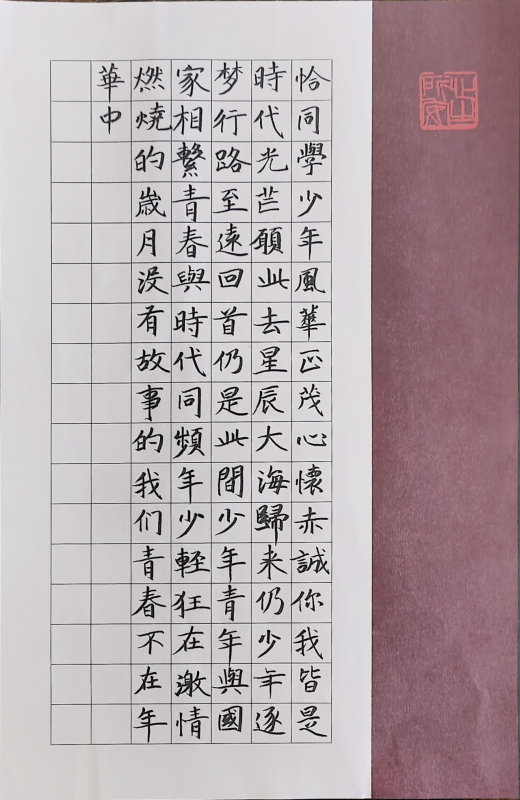 恰同學少年風華正茂心懷赤誠你我皆是
時代光芒願此去星辰大海歸来仍少年逐
梦行路至遠回首仍是此間少年青年與國
家相繫青春與時代同頻年少輕狂在激情
燃燒的歲月没有故事的我们青春不在年
華中